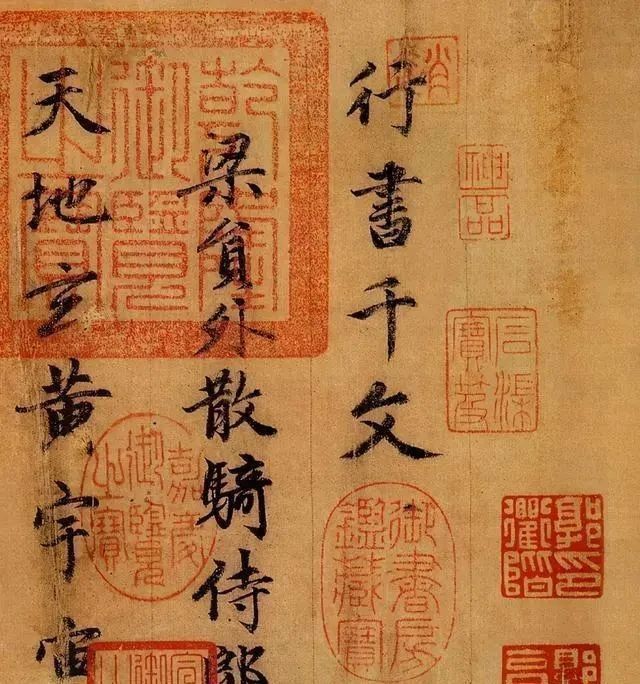 神品
石渠
寶笈
郭印
衢階
御書房
鑑藏寶
行書千文
梁貟外散騎侍郎
天地玄黄宇宙
乾隆
御覽
之寶
嘉慶
御覽
之寶